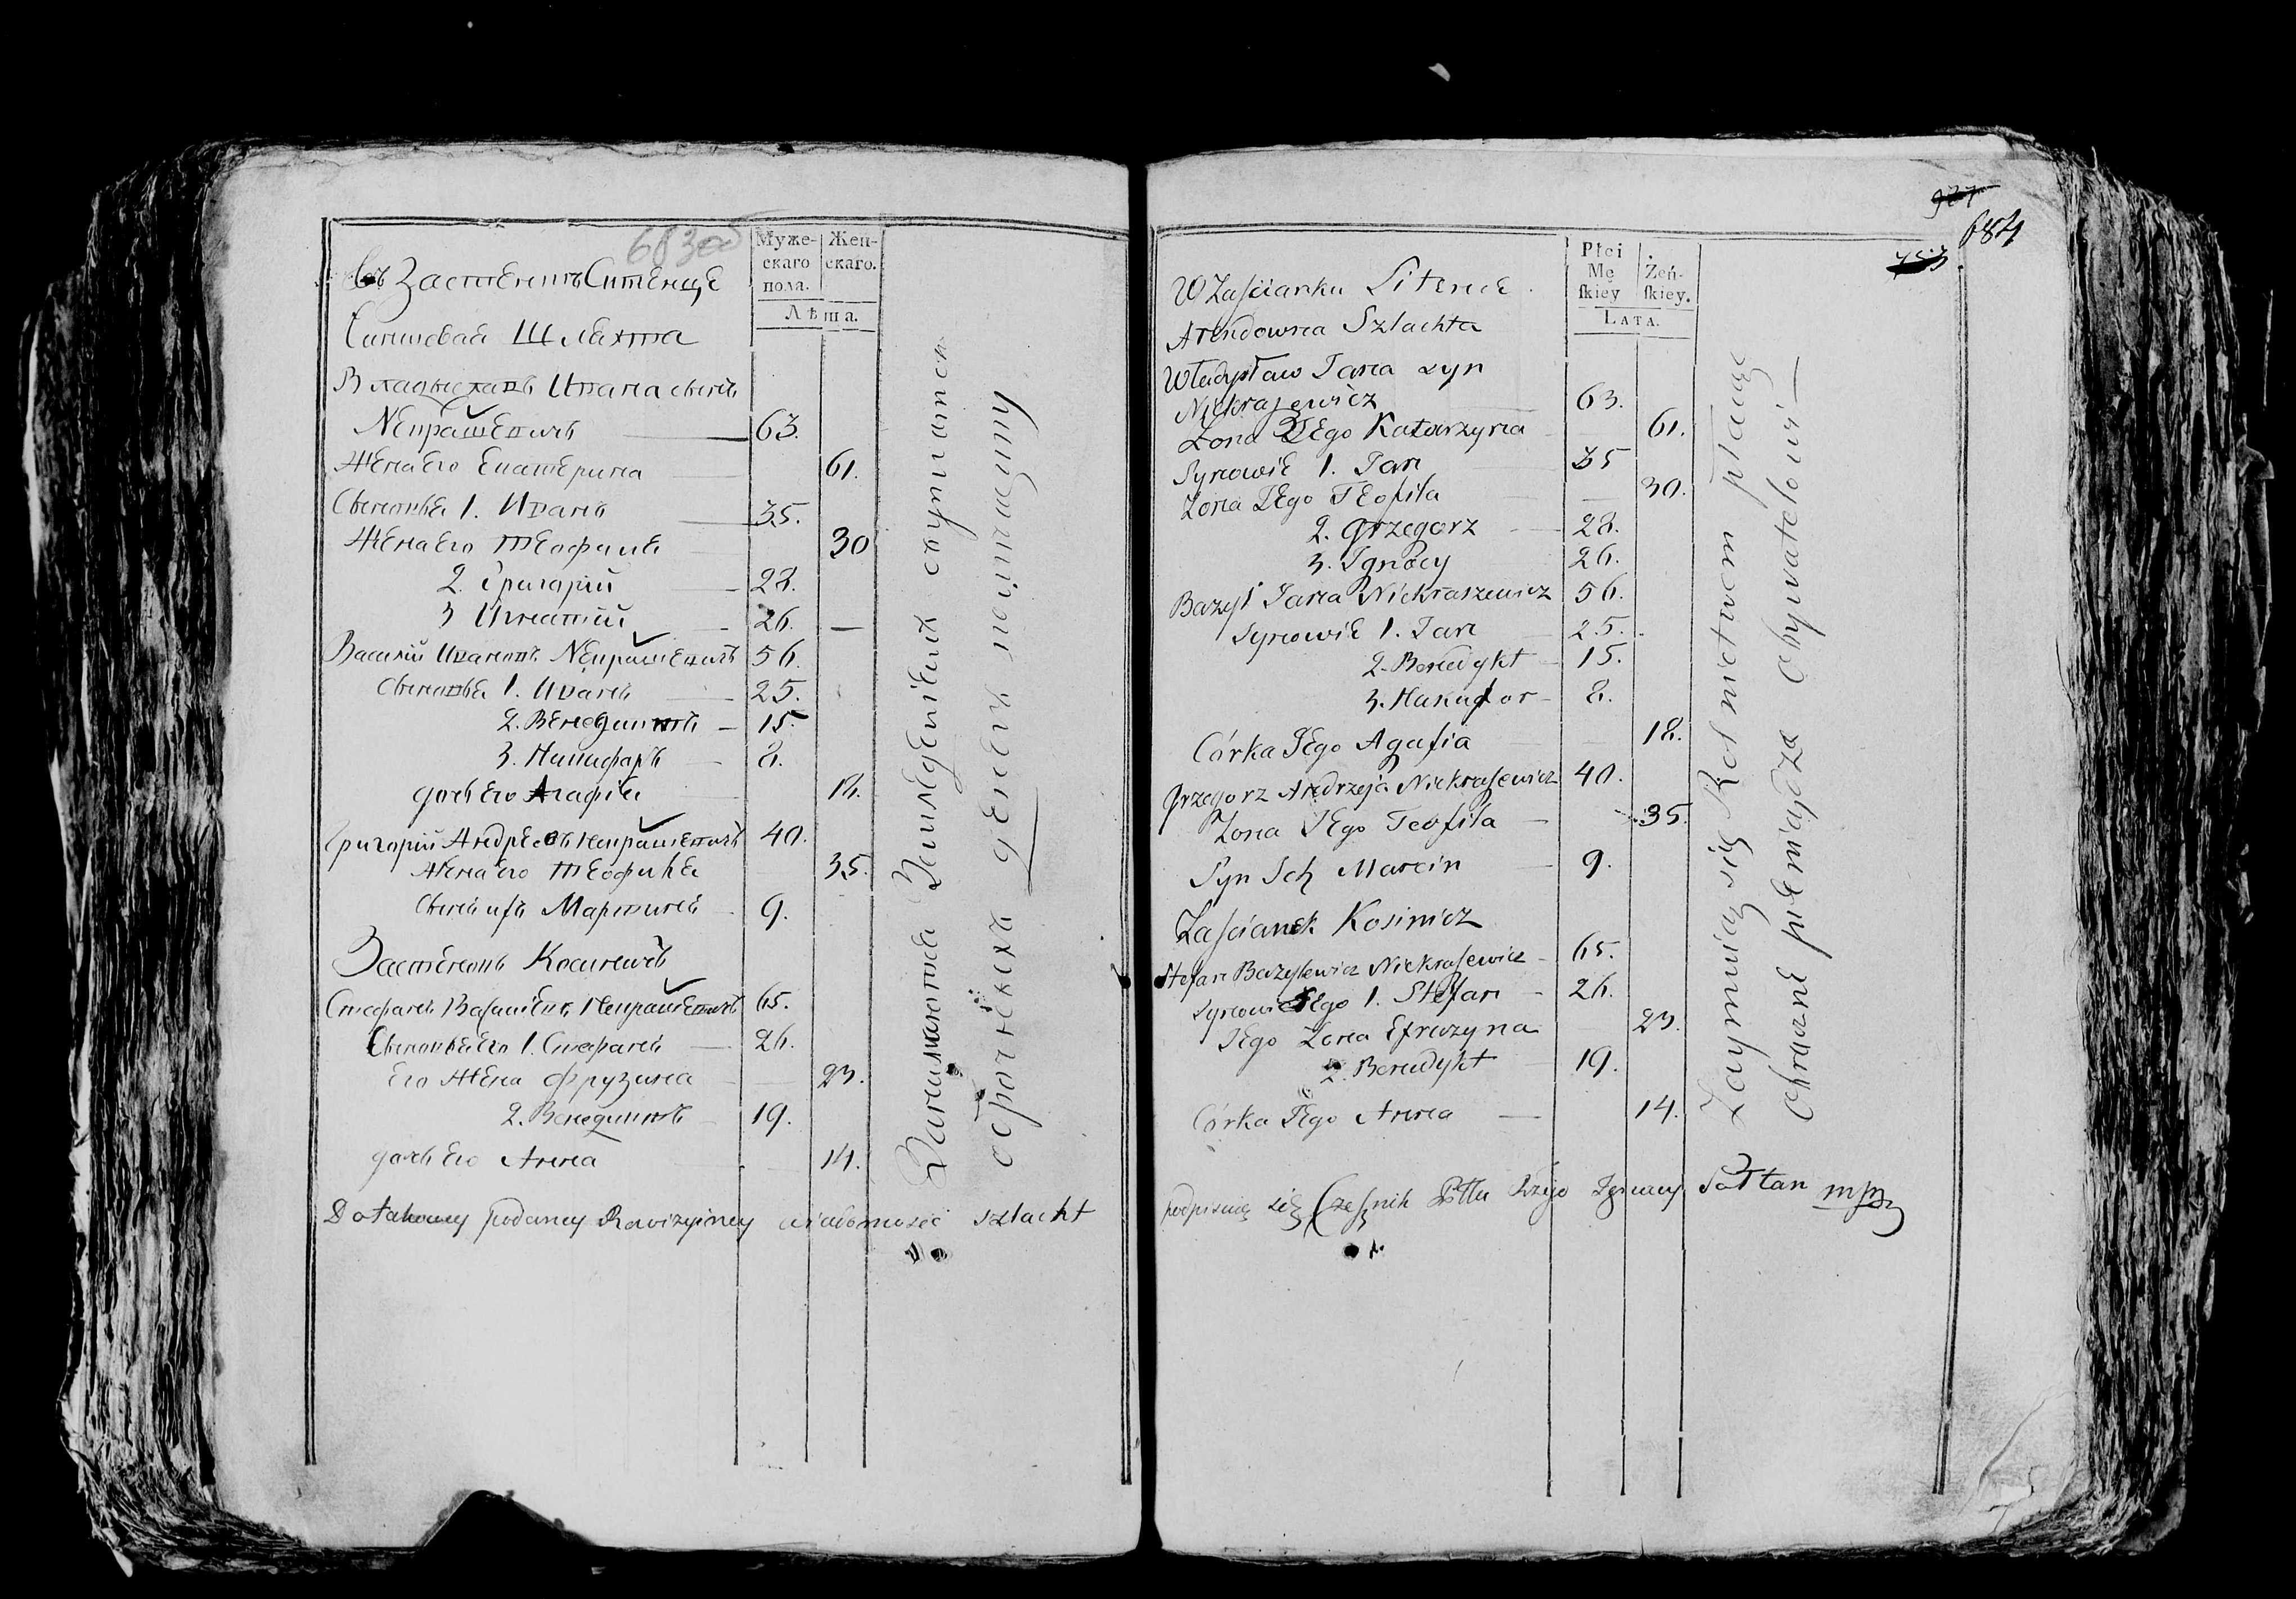 683об
Муже-
скаго
пола.
Жен-
скаго.
Лѣта.
Въ Застенкѣ Ситенце
Чиншовая Шляхта
Владыславъ Ивана сынъ
Некрашевичъ 63.
Жена Его Екатерина 61.
Сыновья 1. Иванъ 35.
Жена Его Теофиля 30
2. Григорій 28.
3 Игнатій 26.
Василій Ивановъ Некрашевичъ 56.
Сыновья 1. Иванъ 25.
2. Венедиктъ 15.
3. Никифаръ 8.
дочь Его Агафія 18.
Григорій Андреевъ Некрашевичъ 40.
Жена Его Теофиля 35.
Сынъ ихъ Мартинъ 9.
Застенокъ Косиничъ
Стефанъ Некрашевичъ 65.
Сыновья Его 1. Стефанъ 26.
Его Жена Фрузина 23.
2. Венедиктъ 19.
дочь Его Анна 14.
Занимаются Земледеліемъ
оброчныхъ денегъ помещику
podaney Rewizyiney wiadomosci szlacht
927
684
753
Płci
Mę
ſkiey
Żeń-
ſkiey.
LATA.
W Zaſcianku Sitence
Arendowna Szlachta
Władysław Jana syn
Niekrajewicz 63.
Zona JEgo Katarzyna 61.
Synowie 1. Jan 35
Zona JEgo TEofila 30.
2. Grzegorz 28.
3. Ignacy 26.
Bazyl Jana Niekraszewicz 56.
Synowie 1. Jan 25.
2. Benedykt 15.
3. Nikifor 8.
Córka JEgo Agafia 18.
Grzegorz Andrzeja Niekraſewicz 40.
Zona JEgo Teofila 35.
Syn Ich Marcin 9.
Zaſcianek Kosinicz
Stefan Bazylewicz Niekraſewicz 65.
Synowie JEgo 1. Stefan 26.
JEgo Zona Efrozyna 23.
2. Benedykt 19.
Córka JEgo Anna 14.
Zaymuią się Rolnictwem płacąc
Obroczne pieniądza Obywatelowi
podpisuię się Czeſnik Pttu Rzgo Ignacy Sołtan mp